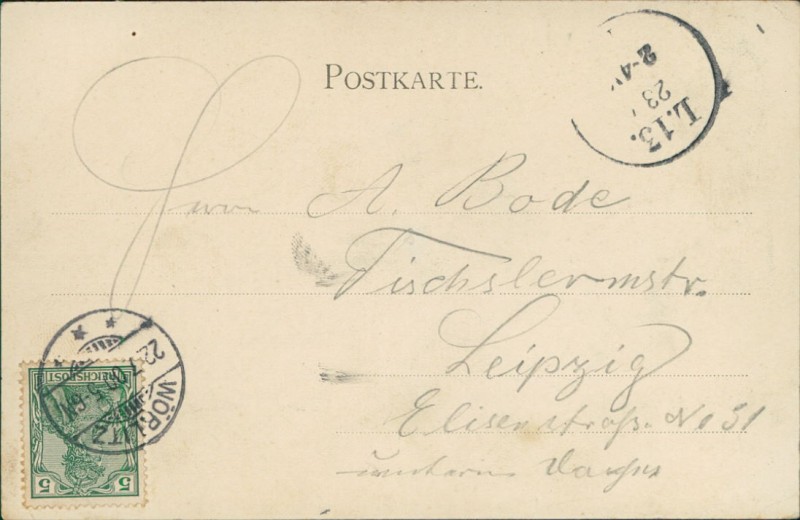 POSTKARTE.
2-4
23
L.13.
Herrn A. Bode
Tischlermstr.
Leipzig
Elisenstraße. No 31
WÖRLITZ
22.
5-6N
REICHSPOST
5 5